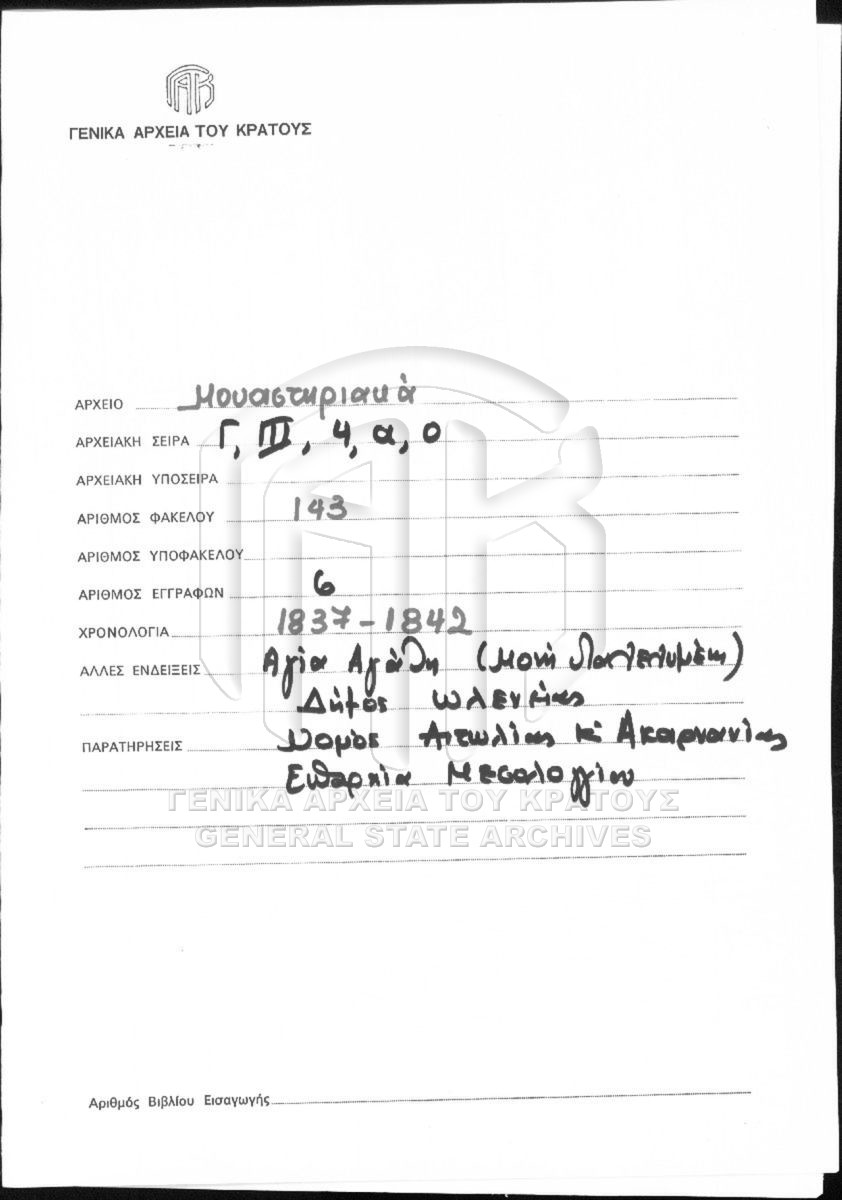 ΓΑΚ
ΓΕΝΙΚΑ ΑΡΧΕΙΑ ΤΟΥ ΚΡΑΤΟΥΣ
ΑΡΧΕΙΟ Μοναστηριακά
ΑΡΧΕΙΑΚΗ ΣΕΙΡΑ Γ, ΙΙΙ, 4, α, ο
ΑΡΧΕΙΑΚΗ ΥΠΟΣΕΙΡΑ
ΑΡΙΘΜΟΣ ΦΑΚΕΛΟΥ 143
ΑΡΙΘΜΟΣ ΥΠΟΦΑΚΕΛΟΥ
ΑΡΙΘΜΟΣ ΕΓΓΡΑΦΩΝ 6
ΧΡΟΝΟΛΟΓΙΑ 1837-1842
ΑΛΛΕΣ ΕΝΔΕΙΞΕΙΣ Αγία Αγάθη (Μονή
Δήμος Ωλενείας
ΠΑΡΑΤΗΡΗΣΕΙΣ Νομός Αιτωλίας κ Ακαρνανίας
Επαρχία Μεσολογγίου
ΓΕΝΙΚΑ ΑΡΧΕΙΑ ΤΟΥ ΚΡΑΤΟΥΣ
GENERAL STATE ARCHIVES
Αριθμός Βιβλίου Εισαγωγής